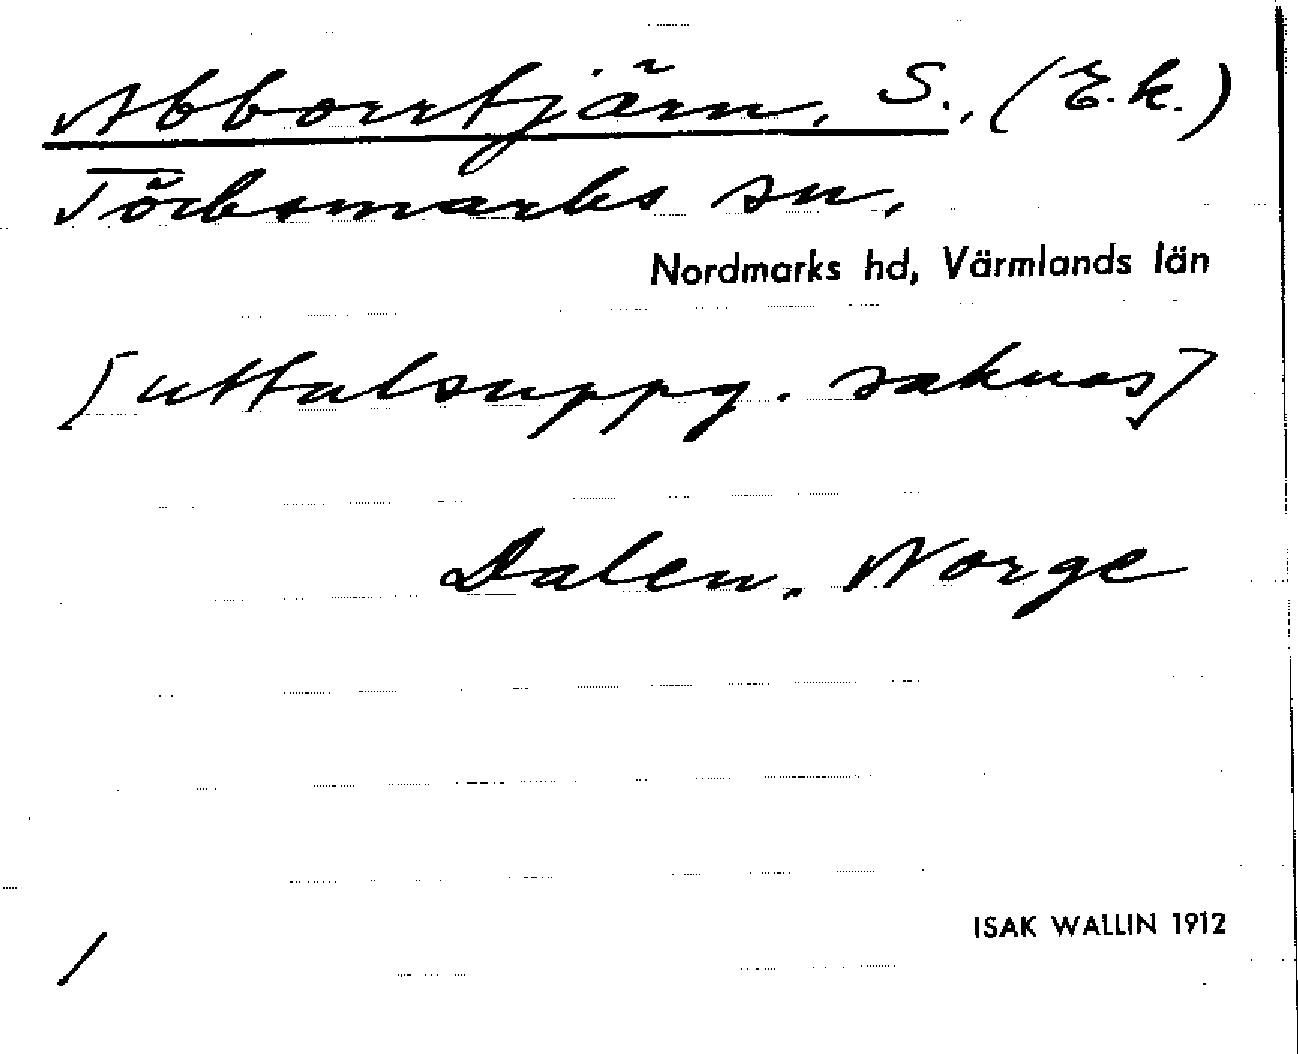 Abborrtjärn, S., (E.k.)
Töcksmarks sn,
Nordmarks hd, Värmlands län
[uttalsuppg. saknas]
Dalen, Norge
ISAK WALLIN 1912
/